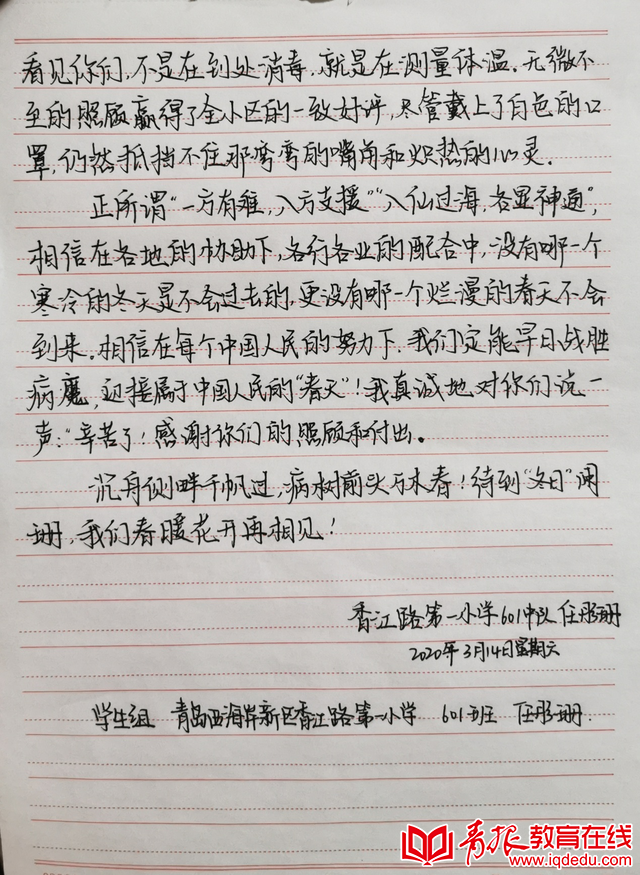 看见你们,不是在到处消毒,就是在测量体温。无微不
至的照顾赢得了全小区的一致好评,尽管戴上了白色的口
罩,仍然抵挡不住那弯弯的嘴角和炽热的心灵。
正所谓"一方有难,八方支援""八仙过海,各显神通",
相信在各地的协助下,各行各业的配合中,没有哪一个
寒冷的冬天是不会过去的,更没有哪一个烂漫的春天不会
到来。相信在每个中国人民的努力下,我们定能早日战胜
病魔,迎接属于中国人民的"春天"!我真诚地对你们说一
声:"辛苦了!感谢你们的照顾和付出。
沉舟侧畔千帆过,病树前头万木春!待到"冬日"阑
珊,我们春暖花开再相见!
香江路第一小学601中队 任彤珊
2020年3月14日星期六
学生组 青岛西海岸新区香江路第一小学 601班 任彤珊
青报教育在线
www.iqdedu.com